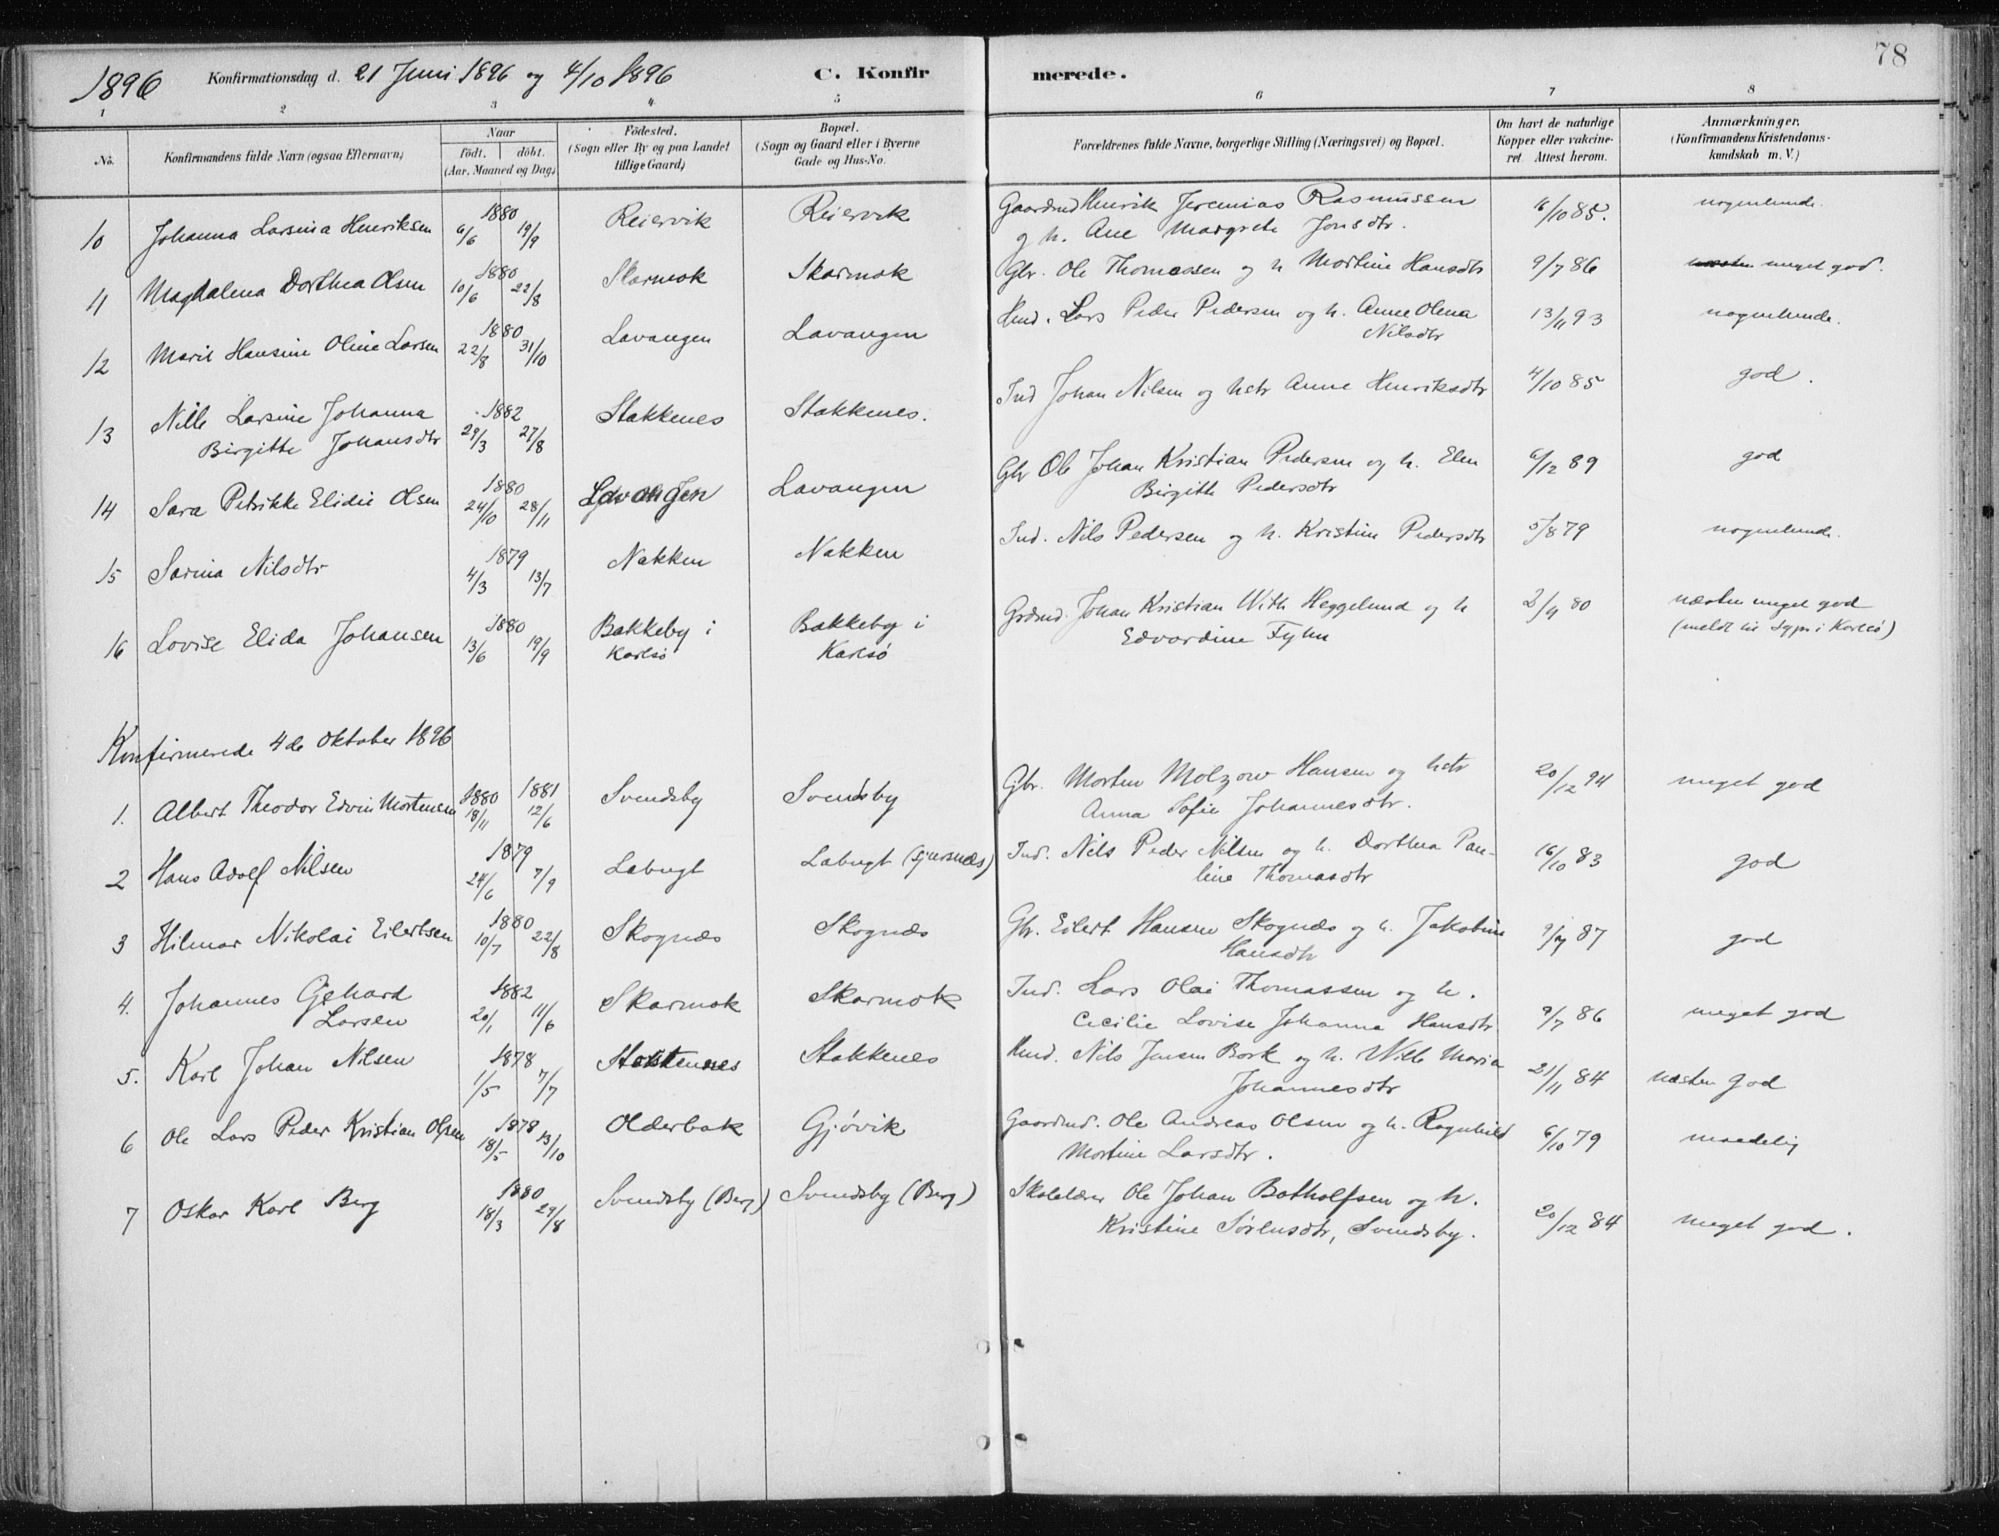 78
1896 Konfirmationsdag d. 21 Juni 1896 og 4/10 1896 C. Konfirmerede.
1 2 3 4 5 6 7 8
No. Konfirmandens fulde Navn (ogsaa Efternavn) Naar födt. döbt. (Aar, Maaned og Dag) Födested. (Sogn eller By og paa Landet tillige Gaard) Bopæl. (Sogn og Gaard eller i Byerne Gade og Hus-No. Forældrenes fulde Navne, borgerlige Stilling (Næringsvei) og Bopæl. Om havt de naturlige Kopper eller vakcineret. Attest herom. Anmærkninger. (Konfirmandens Kristendomskundskab m. V.)
10 Johanna Larsina Henriksen 1880 6/6 19/9 Reiervik Reiervik Gaardmd Henrik Jeremias Rasmussen 16/10 85. nogenlunde.
og h. Ane Margrete Jonsdtr.
11 Magdalena Dorthea Olsen 1880 10/6 22/8 Skarmok Skarmok Gbr. Ole Thomassen og h Mortine Hansdtr 9/7 86 meget god.
12 Marie Hansine Oline Larsen 1880 22/8 31/10 Lavangen Lavangen Lars Peder Pedersen og h. Anne Olena 13/11 93 nogenlunde.
Nilsdtr
13 Nille Larsine Johanna 1882 29/3 27/8 Stakkenes Stakkenes. Ind Johan Nilsen og hstr Anne Henriksdtr 4/10 85 god.
Birgitte Johansdtr
14 Sara Petrikke Elidie Olsen 1880 24/10 28/11 Lavangen Lavangen Gbr Ole Johan Kristian Pedersen og h. Elen 6/12 89 god
Birgitte Pedersdtr
15 Sarina Nilsdtr 1879 4/3 13/7 Nakken Nakken Ind. Nils Pedersen og h. Kristine Pedersdtr 5/8 79 nogenlunde.
16 Lovise Elida Johansen 1880 13/6 19/9 Bakkeby i Bakkeby i Johan Kristian With Heggelund og h 2/9 80 næsten meget god
Karlsö Karlsö Edvardine Fyhn (meldt til Sgpr. i Karlsö)
Konfirmerede 4de Oktober 1896
1. Albert Theodor Edvin Mortensen 1880 18/11 1881 12/6 Svendsby Svendsby Gbr. Morten Molzow Hansen og hstr 20/12 94 meget god
Anna Sofie Johannesdtr.
2 Hans Adolf Nilsen 1879 24/6 7/9 Labugt Labugt (Gjøvsnes) Ind. Nils Peder Nilsen og h. Dorthea Pau- 16/10 83 god
line Thomasdtr
3 Hilmar Nikolai Eilertsen 1880 10/7 22/8 Skognæs Skognæs Gbr. Eilert Hansen Skognæs og h. Jakobine 9/7 87 god
Hansdtr
4. Johannes Gjehard 1882 20/1 11/6 Skarmok Skarmok Ind. Lars Olai Thomassen og h. 9/7 86 meget god
Larsen Cecilie Lovise Johanna Hansdtr.
5. Karl Johan Nilsen 1878 1/5 7/7 Stakkenes Stakkenes Nils Jensen Bork og h. Wille Maria 21/11 84 næsten god
Johannesdtr
6 Ole Lars Peder Kristian Olsen 1878 18/5 13/10 Olderbak Gjövik Gaardmd. Ole Andreas Olsen og h. Ragnhild 6/10 79 maadelig
Mortine Larsdtr.
7 Oskar Karl Berg 1880 18/3 29/8 Svendsby (Berg) Svendsby (Berg) Skolelærer Ole Johan Botholfsen og h. 20/12 84 meget god.
Kristine Sörensdtr, Svendsby.